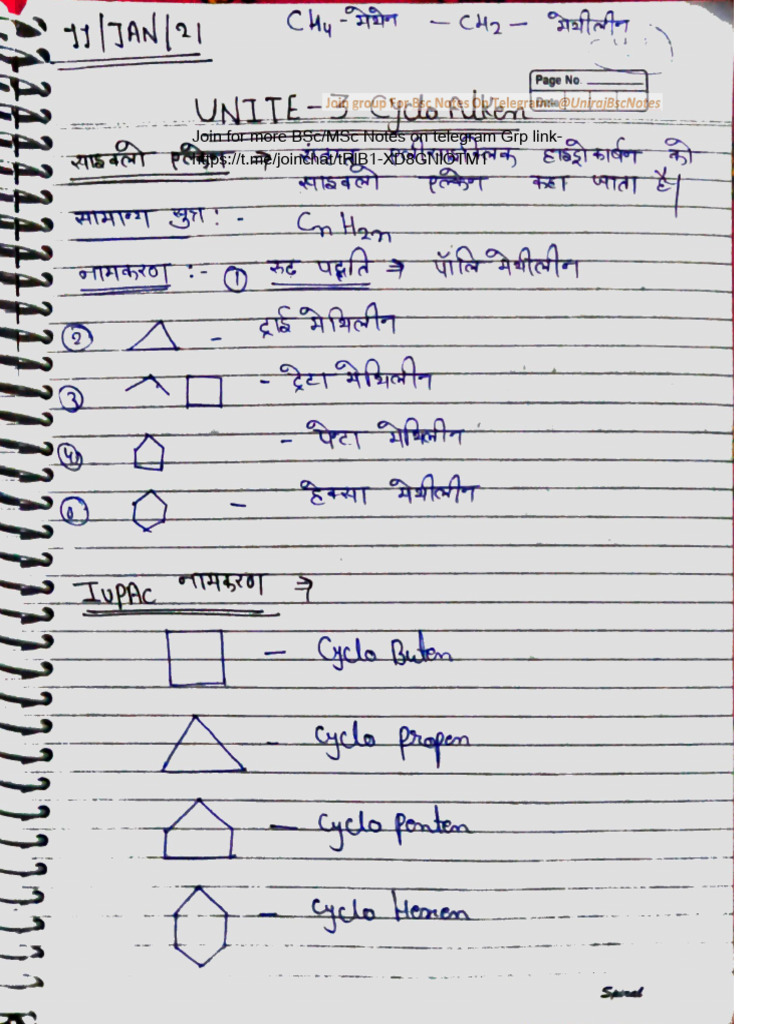 11/JAN/21
CH4 - मेथेन - CH2 - मेथीलीन
Page No.
Join group For Bsc Notes On Telegram @UnirajBscNotes
UNITE - 3 Cyclo Alken
Join for more BSc/MSc Notes on telegram Grp link-
साइक्लो एल्केन → हाइड्रोकार्बन को
साइक्लो एल्केन कहा जाता है।
सामान्य सुत्र : - CnH2n
नामकरण :- ① रुढ पद्धति → पॉलि मेथीलीन
② - ट्राई मेथिलीन
③ - टेटा मेथिलीन
④ - पेन्टा मेथिलीन
- हेक्सा मेथीलीन
IUPAC नामकरण →
- Cyclo Buten
- Cyclo Propen
- Cyclo Penten
- Cyclo Hexen
Spiral